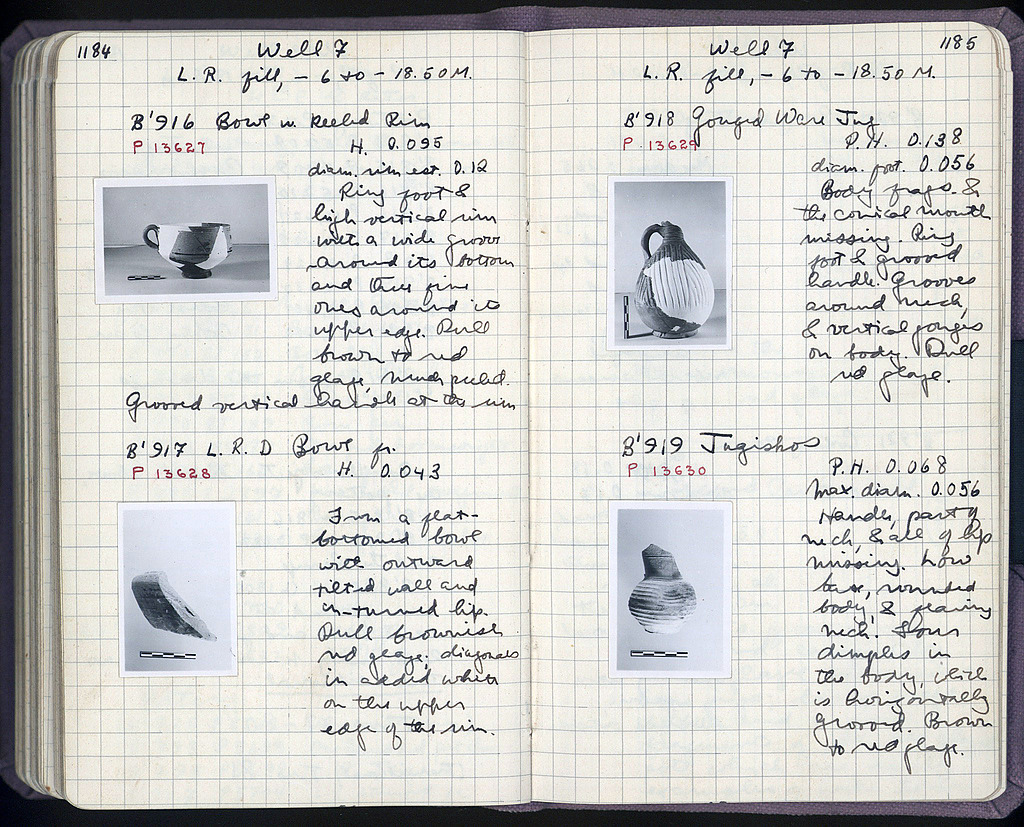 1184
Well 7
L. R. fill, - 6 to - 18.50 M.
B'916 Bowl w. Reeled Rim
P 13627
H. 0.095
diam. rim est. 0.12
Ring foot &
high vertical rim
with a wide groove
around its bottom
and three fine
ones around its
upper edge. Dull
brown to red
glaze, much peeled.
Grooved vertical handle at the rim
B'917 L. R. D Bowl fr.
P 13628
H. 0.043
From a flat-
bottomed bowl
with outward
tilted wall and
in-turned lip.
Dull brownish
red glaze; diagonals
in added white
on the upper
edge of the rim.
1185
Well 7
L. R. fill, - 6 to - 18.50 M.
B'918 Gouged Ware Jug
P 13629
P. H. 0.138
diam. foot. 0.056
Body frags. &
the conical mouth
missing. Ring
foot & grooved
handle. Grooves
around neck,
& vertical gouges
on body. Dull
red glaze.
B'919 Jugiskos
P 13630
P. H. 0.068
max. diam. 0.056
Handle, part of
neck, & all of lip
missing. Low
base, rounded
body, & flaring
neck. Four
dimples in
the body, which
is horizontally
grooved. Brown
to red glaze.